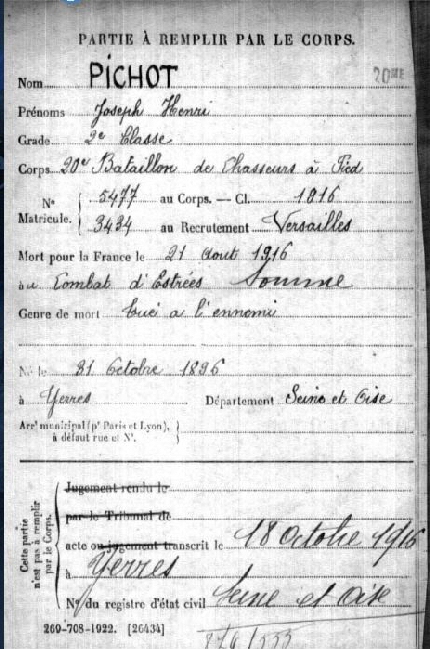 PARTIE À REMPLIR PAR LE CORPS.
20ME
Nom PICHOT
Prénoms Joseph Henri
Grade 2e Classe
Corps 20e Bataillon de Chasseurs à Pied
N° Matricule. { 5477 au Corps. — Cl. 1816
3434 au Recrutement Versailles
Mort pour la France le 21 Aout 1916
à au Combat d'Estrées Somme
Genre de mort Tué a l'ennemi
Né le 31 Octobre 1896
à Yerres Département Seine et Oise
Arrt municipal (pr Paris et Lyon), à défaut rue et N°. }
Cette partie n'est pas à remplir par le Corps.
Jugement rendu le
par le Tribunal de
acte ou jugement transcrit le 18 Octobre 1916
à Yerres
N° du registre d'état civil Seine et Oise
269-708-1922. [26434]